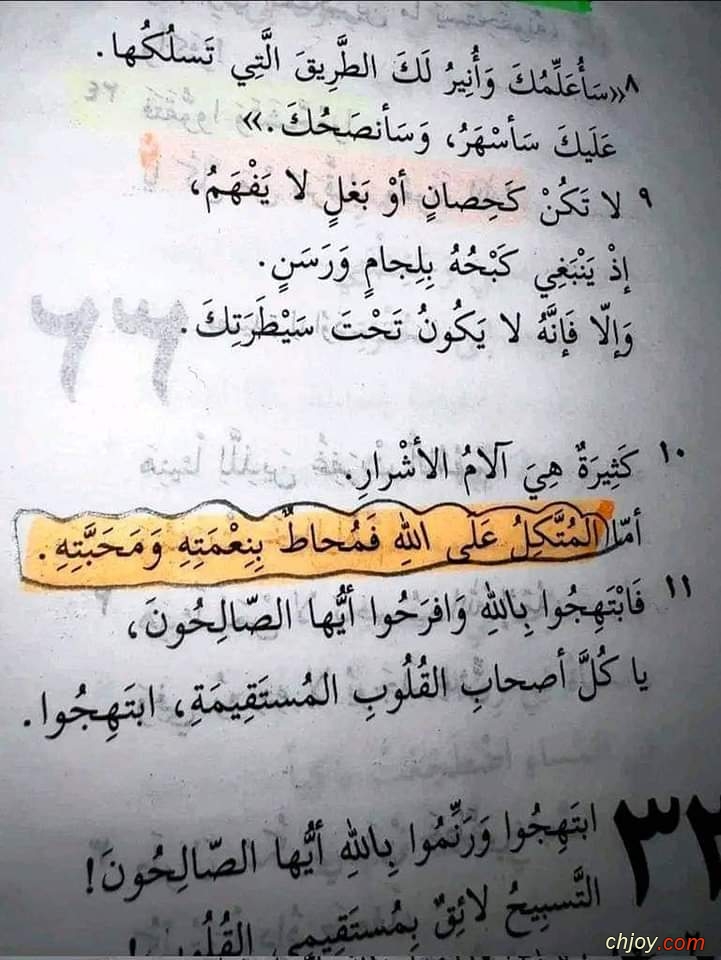 ٨ «سَأُعَلِّمُكَ وَأُنِيرُ لَكَ الطَّرِيقَ الَّتِي تَسلُكُها.
عَلَيكَ سَأسْهَرُ، وَسَأنصَحُكَ.»
٩ لا تَكُنْ كَحِصانٍ أوْ بَغلٍ لا يَفْهَمُ،
إذْ يَنْبَغِي كَبْحُهُ بِلِجامٍ وَرَسَنٍ.
وَإلّا فَإنَّهُ لا يَكُونُ تَحْتَ سَيْطَرَتِكَ.
١٠ كَثِيرَةٌ هِيَ آلامُ الأشْرارِ.
أمّا المُتَّكِلُ عَلَى اللهِ فَمُحاطٌ بِنِعْمَتِهِ وَمَحَبَّتِهِ.
١١ فَابْتَهِجُوا بِاللهِ وَافرَحُوا أيُّها الصّالِحُونَ،
يا كُلَّ أصحابِ القُلُوبِ المُستَقِيمَةِ، ابتَهِجُوا.
ابتَهِجُوا وَرَنِّمُوا بِاللهِ أيُّها الصّالِحُونَ!
التَّسبِيحُ لائِقٌ بِمُستَقِيمِي القُلُوبِ!
chjoy.com